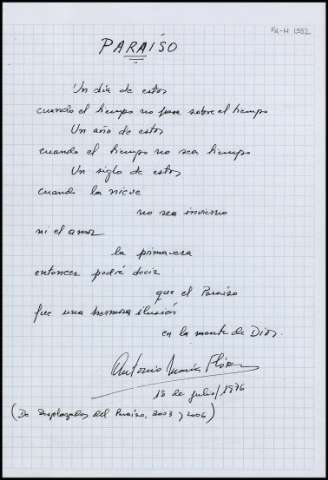 PARAÍSO
Un día de estos
cuando el tiempo no pase sobre el tiempo
Un año de estos
cuando el tiempo no sea tiempo
Un siglo de estos
cuando la nieve
no sea invierno
ni el amor
la primavera
entonces podré decir
que el Paraíso
fue una hermosa ilusión
en la mente de Dios.
Antonio María Flórez
18 de julio/1996
(De Desplazados del Paraíso, 2003 y 2006)